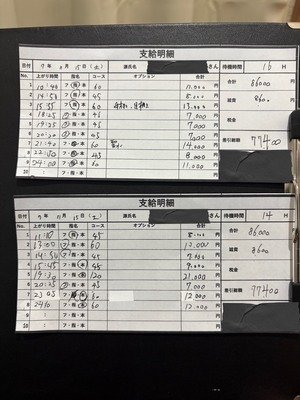 支給明細
日付 7年 11月 15日(土) 源氏名 さん 待機時間 16 H
上がり時間 フ・指・本 コース オプション 合計
1 10:40 フ・指・本 60 11.000
2 フ・指・本 45 8.000
3 15:35 フ・指・本 60 13.000
4 18:25 フ・指・本 45 7.000
5 フ・指・本 45 7.000
6 20:20 フ・指・本 45 7.000
7 21:40 フ・指・本 60 14.000
8 フ・指・本 45 8.000
9 24:00 フ・指・本 60 11.000
10 : フ・指・本
合計 86000
雑費 8600
税金
差引総額 77400
支給明細
日付 7年 11月 15日(土) 源氏名 さん 待機時間 14 H
上がり時間 フ・指・本 コース オプション 合計
1 フ・指・本 45
2 13:00 フ・指・本 60 12.000
3 14:50 フ・指・本 45
4 15:45 フ・指・本
5 19:30 フ・指・本 21.000
6 20:25 フ・指・本 45 7.000
7 23:05 フ・指・本 60 12.000
8 フ・指・本 60 12.000
9 : フ・指・本
10 : フ・指・本
合計 86000
雑費 8600
税金
差引総額 77400